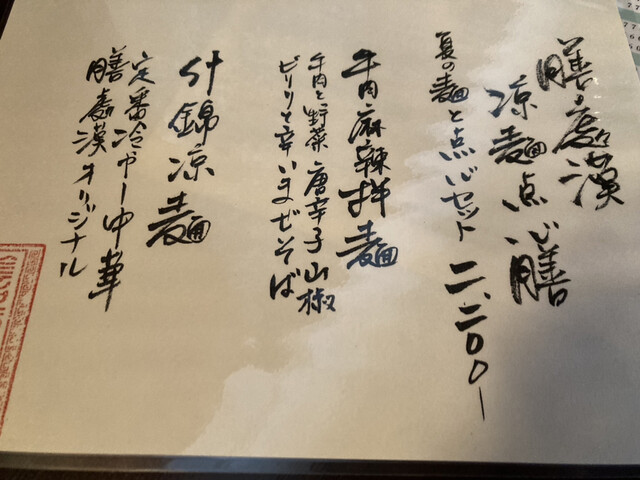 膳處漢
涼麺点心膳
夏の麺と点心セット 二、二〇〇ー
牛肉麻辣拌麺
牛肉と野菜 唐辛子山椒
ピリリと辛いまぜそば
什錦涼麺
定番冷やし中華
膳處漢オリジナル